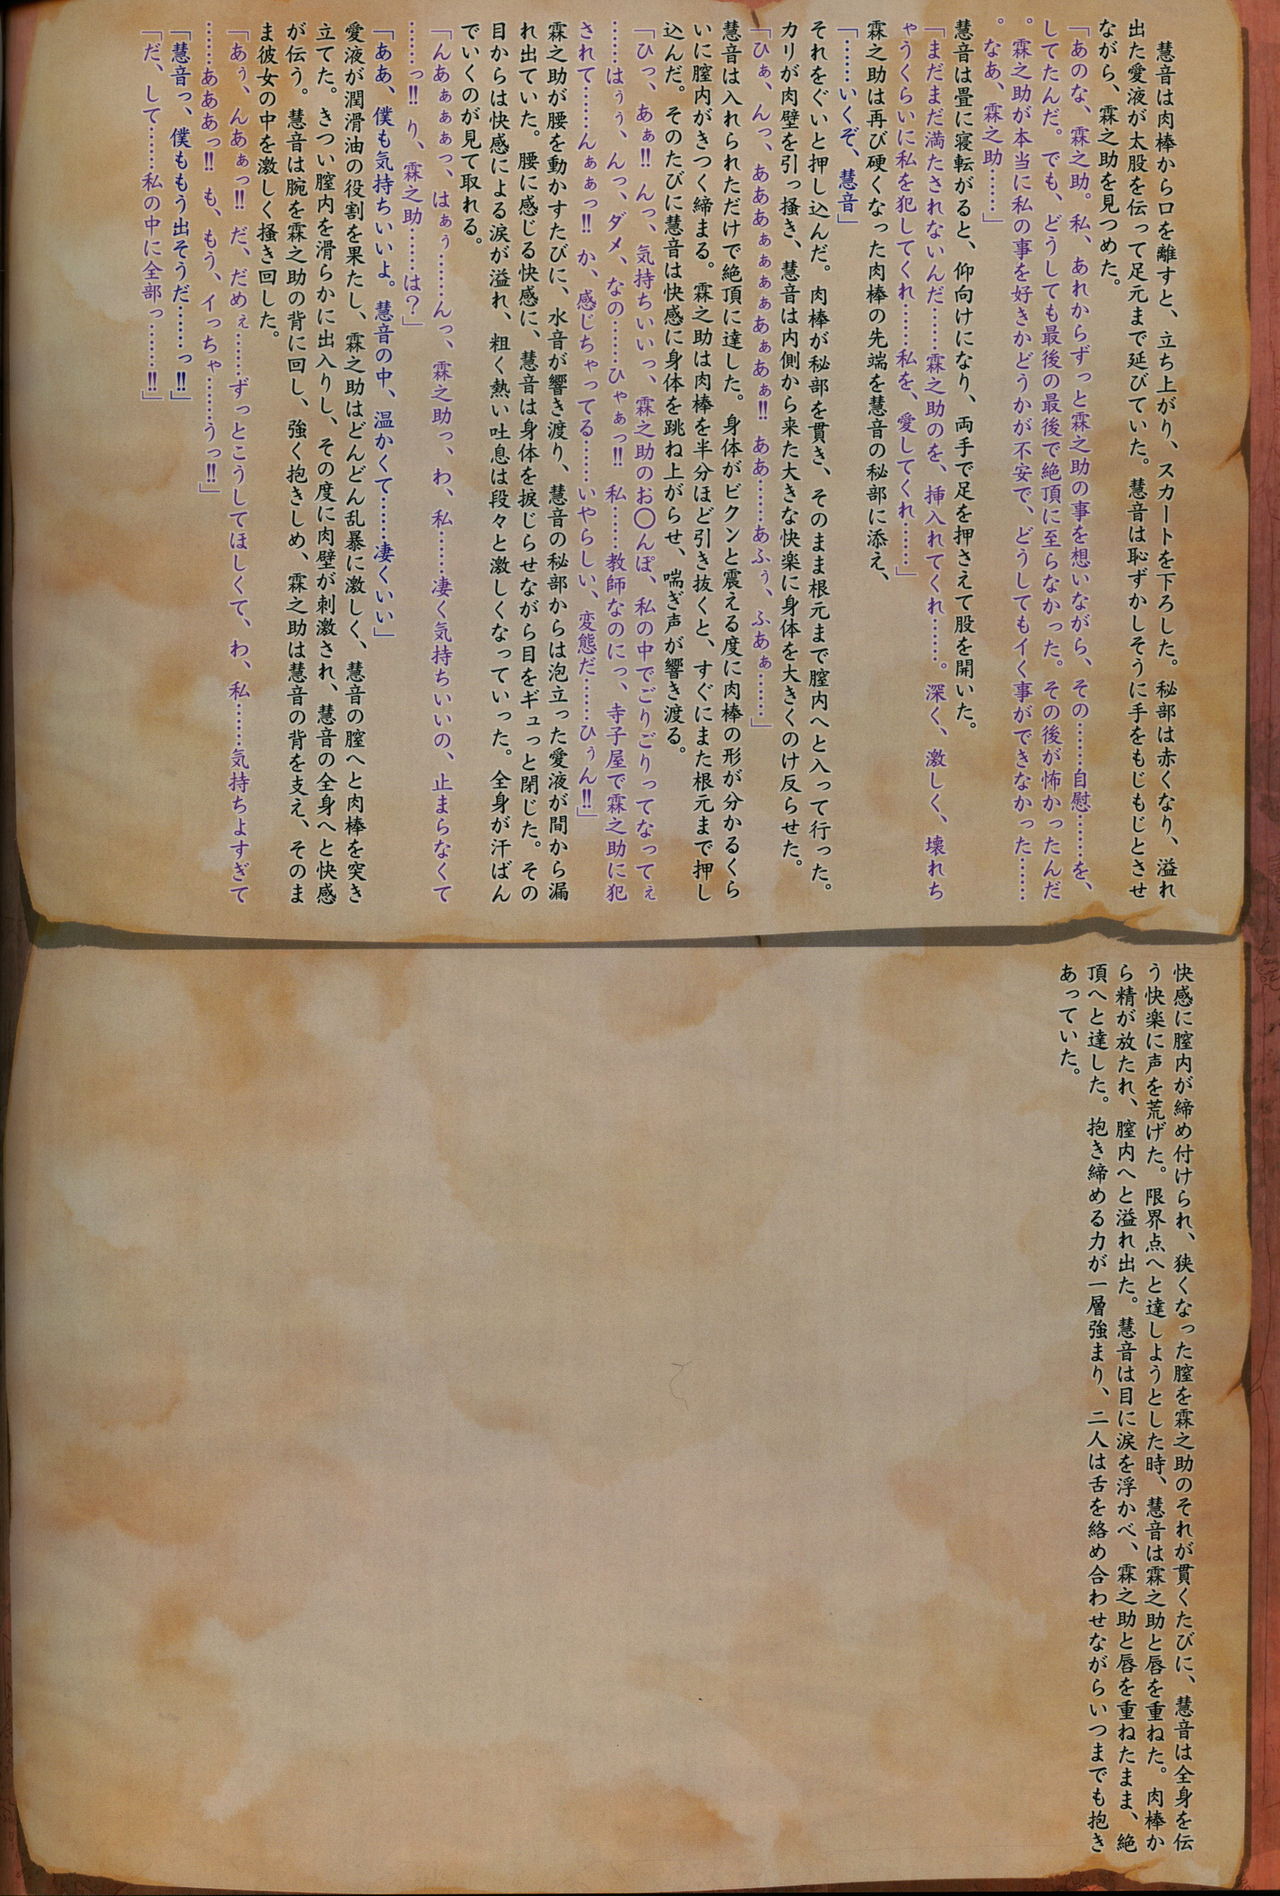 慧音は肉棒から口を離すと、立ち上がり、スカートを下ろした。秘部は赤くなり、溢れ
出た愛液が太股を伝って足元まで延びていた。慧音は恥ずかしそうに手をもじもじとさせ
ながら、霖之助を見つめた。
「あのな、霖之助。私、あれからずっと霖之助の事を想いながら、その……自慰……を、
してたんだ。でも、どうしても最後の最後で絶頂に至らなかった。その後が怖かったんだ
。霖之助が本当に私の事を好きかどうかが不安で、どうしてもイく事ができなかった……
。なあ、霖之助……」
慧音は畳に寝転がると、仰向けになり、両手で足を押さえて股を開いた。
「まだまだ満たされないんだ……霖之助のを、挿入れてくれ……。深く、激しく、壊れち
ゃうくらいに私を犯してくれ……私を、愛してくれ……」
霖之助は再び硬くなった肉棒の先端を慧音の秘部に添え、
「……いくぞ、慧音」
それをぐいと押し込んだ。肉棒が秘部を貫き、そのまま根元まで膣内へと入って行った。
カリが肉壁を引っ掻き、慧音は内側から来た大きな快楽に身体を大きくのけ反らせた。
「ひぁ、んっ、あああぁぁぁあぁあぁ!! ああ……あふぅ、ふあぁ……」
慧音は入れられただけで絶頂に達した。身体がビクンと震える度に肉棒の形が分かるくら
いに膣内がきつく締まる。霖之助は肉棒を半分ほど引き抜くと、すぐにまた根元まで押し
込んだ。そのたびに慧音は快感に身体を跳ね上がらせ、喘ぎ声が響き渡る。
「ひっ、あぁ!! んっ、気持ちいいっ、霖之助のお〇んぽ、私の中でごりごりってなってぇ
……はぅぅ、んっ、ダメ、なの……ひゃぁっ!! 私……教師なのにっ、寺子屋で霖之助に犯
されて……んぁぁっ!! か、感じちゃってる……いやらしい、変態だ……ひぅん!!」
霖之助が腰を動かすたびに、水音が響き渡り、慧音の秘部からは泡立った愛液が間から漏
れ出ていた。腰に感じる快感に、慧音は身体を捩じらせながら目をギュっと閉じた。その
目からは快感による涙が溢れ、粗く熱い吐息は段々と激しくなっていった。全身が汗ばん
でいくのが見て取れる。
「んあぁぁぁっ、はぁぅ……んっ、霖之助っ、わ、私……凄く気持ちいいの、止まらなくて
……っ!! り、霖之助……は?」
「ああ、僕も気持ちいいよ。慧音の中、温かくて……凄くいい」
愛液が潤滑油の役割を果たし、霖之助はどんどん乱暴に激しく、慧音の膣へと肉棒を突き
立てた。きつい膣内を滑らかに出入りし、その度に肉壁が刺激され、慧音の全身へと快感
が伝う。慧音は腕を霖之助の背に回し、強く抱きしめ、霖之助は慧音の背を支え、そのま
ま彼女の中を激しく掻き回した。
「あぅ、んあぁっ!! だ、だめぇ……ずっとこうしてほしくて、わ、私……気持ちよすぎて
……あああっ!! も、もう、イっちゃ……うっ!!」
「慧音っ、僕ももう出そうだ……っ!!」
「だ、して……私の中に全部っ……!!」
快感に膣内が締め付けられ、狭くなった膣を霖之助のそれが貫くたびに、慧音は全身を伝
う快楽に声を荒げた。限界点へと達しようとした時、慧音は霖之助と唇を重ねた。肉棒か
ら精が放たれ、膣内へと溢れ出た。慧音は目に涙を浮かべ、霖之助と唇を重ねたまま、絶
頂へと達した。抱き締める力が一層強まり、二人は舌を絡め合わせながらいつまでも抱き
あっていた。